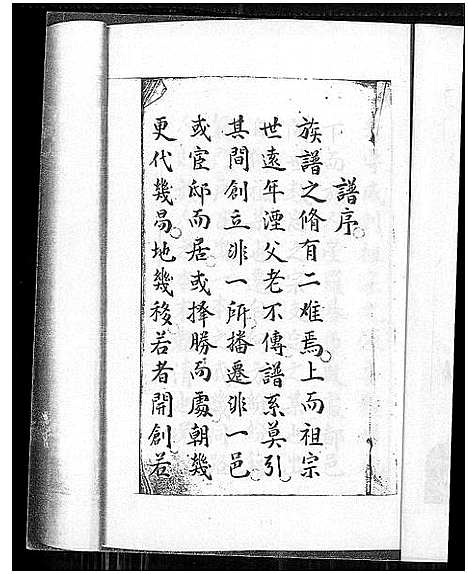 譜序
族譜之脩有二难焉上而祖宗
世遠年湮父老不傳譜系莫引
其間創立非一所播遷非一邑
或宦邸而居或择勝而處朝幾
更代幾易地幾移若者開創若